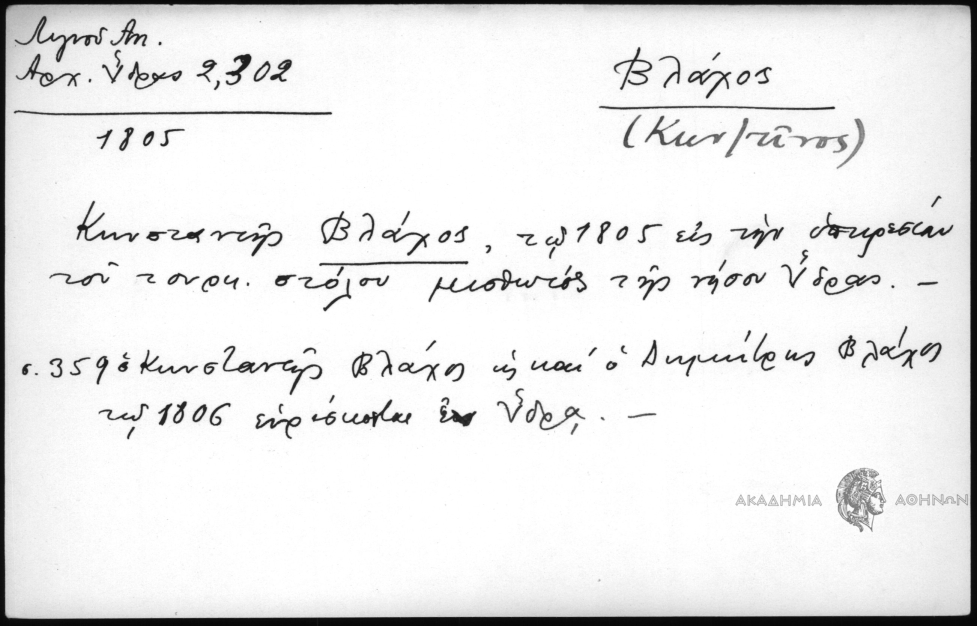 Λιγνοῦ Ἀπ.
Αρχ. Ὕδρας 2,302
1805
Βλάχος
(Κων/τῖνος)
Κωνσταντῆς Βλάχος, τῷ 1805 εἰς τὴν ὑπηρεσίαν
τοῦ τουρκ. στόλου μισθωτός τῆς νήσου Ὕδρας. —
σ. 359 ὁ Κωνσταντῆς Βλάχος ὡς καί ὁ Δημήτρης Βλάχος
τῷ 1806 εὑρίσκονται ἐν Ὕδρᾳ. —
ΑΚΑΔΗΜΙΑ ΑΘΗΝΩΝ